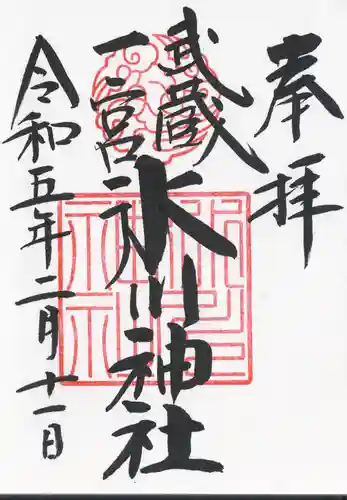 奉拝
武蔵
一宮
氷川神社
令和五年二月十一日